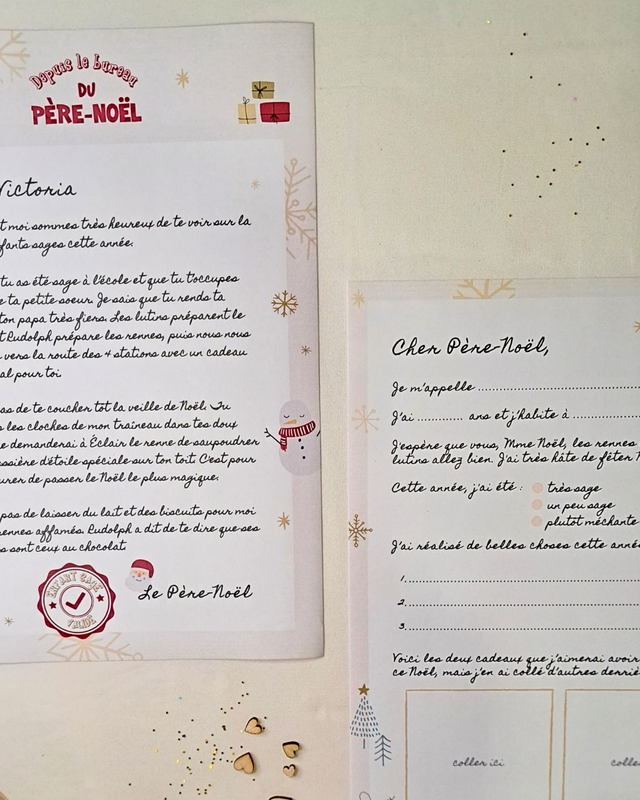 Depuis le bureau
DU
PÈRE-NOËL
Victoria
t moi sommes très heureux de te voir sur la
fants sages cette année.
tu as été sage à l'école et que tu t'occupes
e ta petite soeur. Je sais que tu rends ta
ton papa très fiers. Les lutins préparent le
t Rudolph prépare les rennes, puis nous nous
vers la route des 4 stations avec un cadeau
al pour toi.
as de te coucher tôt la veille de Noël. Tu
s les cloches de mon traîneau dans tes doux
e demanderai à Éclair le renne de saupoudrer
ssière d'étoile spéciale sur ton toit. C'est pour
urer de passer le Noël le plus magique.
pas de laisser du lait et des biscuits pour moi
rennes affamés. Rudolph a dit de te dire que ses
s sont ceux au chocolat.
ENFANT SAGE
VALIDÉ
Le Père-Noël
Cher Père-Noël,
Je m'appelle
J'ai .......... ans et j'habite à
J'espère que vous, Mme Noël, les rennes
lutins allez bien. J'ai très hâte de fêter N
Cette année, j'ai été :
très sage
un peu sage
plutôt méchante
J'ai réalisé de belles choses cette anné
1.
2.
3.
Voici les deux cadeaux que j'aimerai avoir
ce Noël, mais j'en ai collé d'autres derriè
coller ici
colle